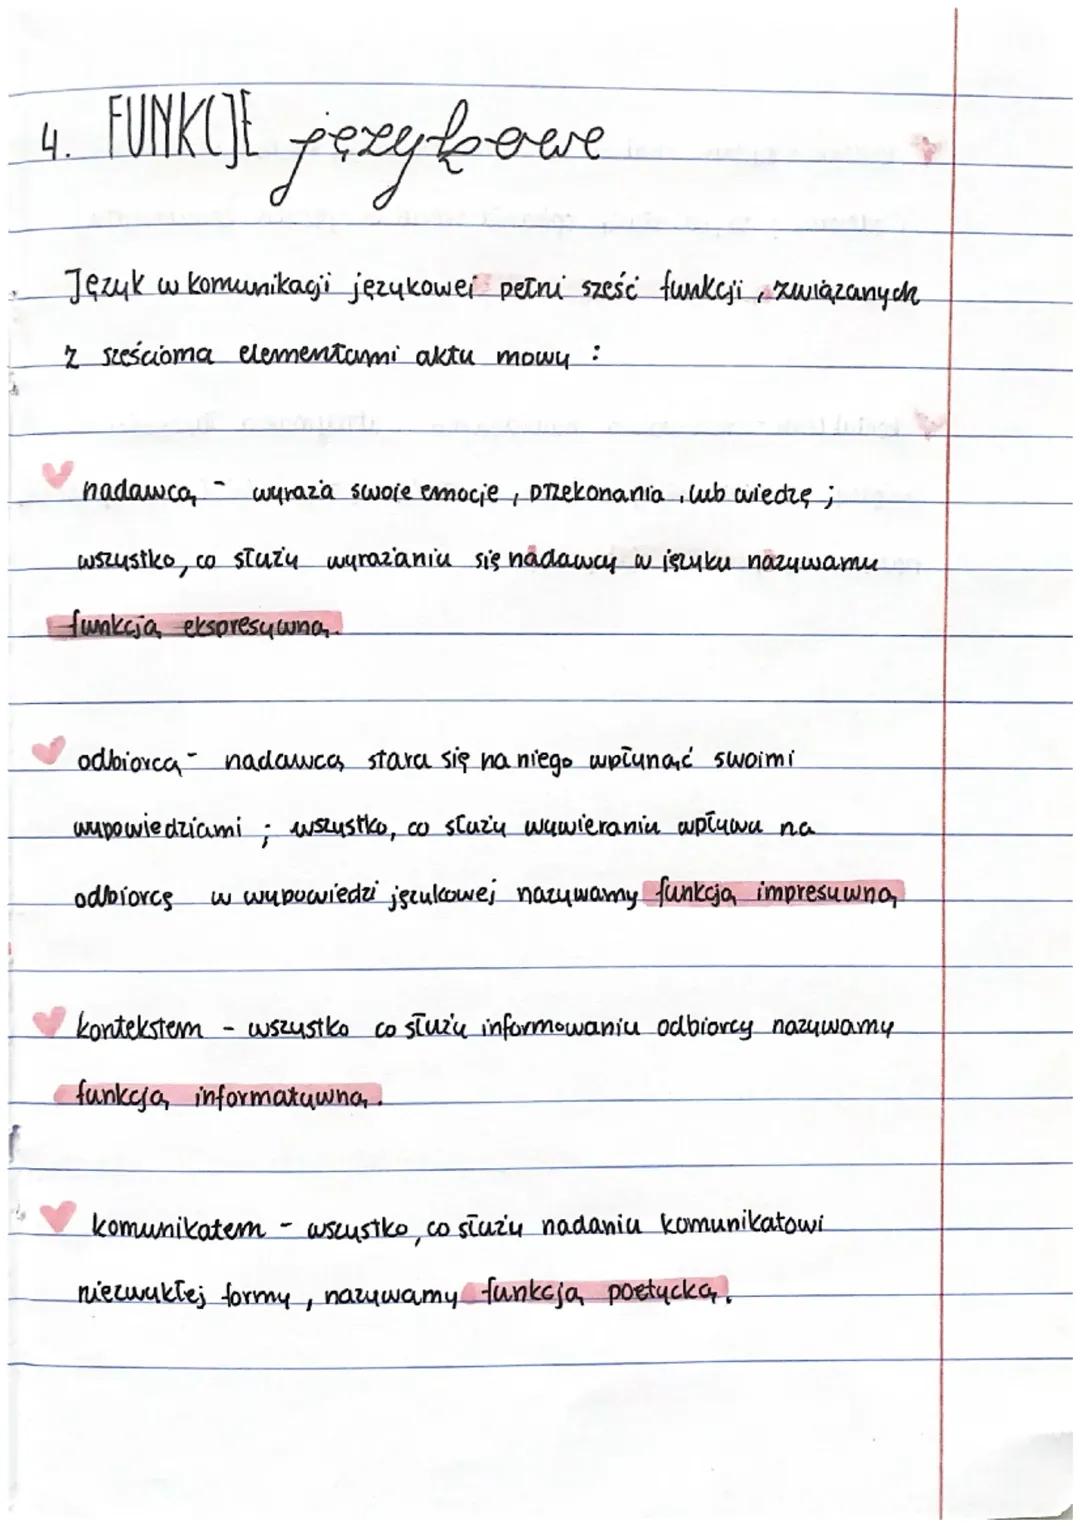 4. FUNKCJE językowe
Język w komunikacji językowej pełni sześć funkcji, związanych
z sześcioma elementami aktu mowy :
nadawcą - wyraża swoje emocje, przekonania, lub wiedzę ;
wszystko, co służy wyrażaniu się nadawcy w języku nazywamy
funkcją ekspresywną.
odbiorcą - nadawcą stara się na niego wpłynąć swoimi
wypowiedziami ; wszystko, co służy wywieraniu wpływu na
odbiorcę w wypowiedzi językowej nazywamy funkcją impresywną
kontekstem - wszystko co służy informowaniu odbiorcy nazywamy
funkcją informatywną.
komunikatem - wszystko, co służy nadaniu komunikatowi
niezwykłej formy, nazywamy funkcją poetycką.